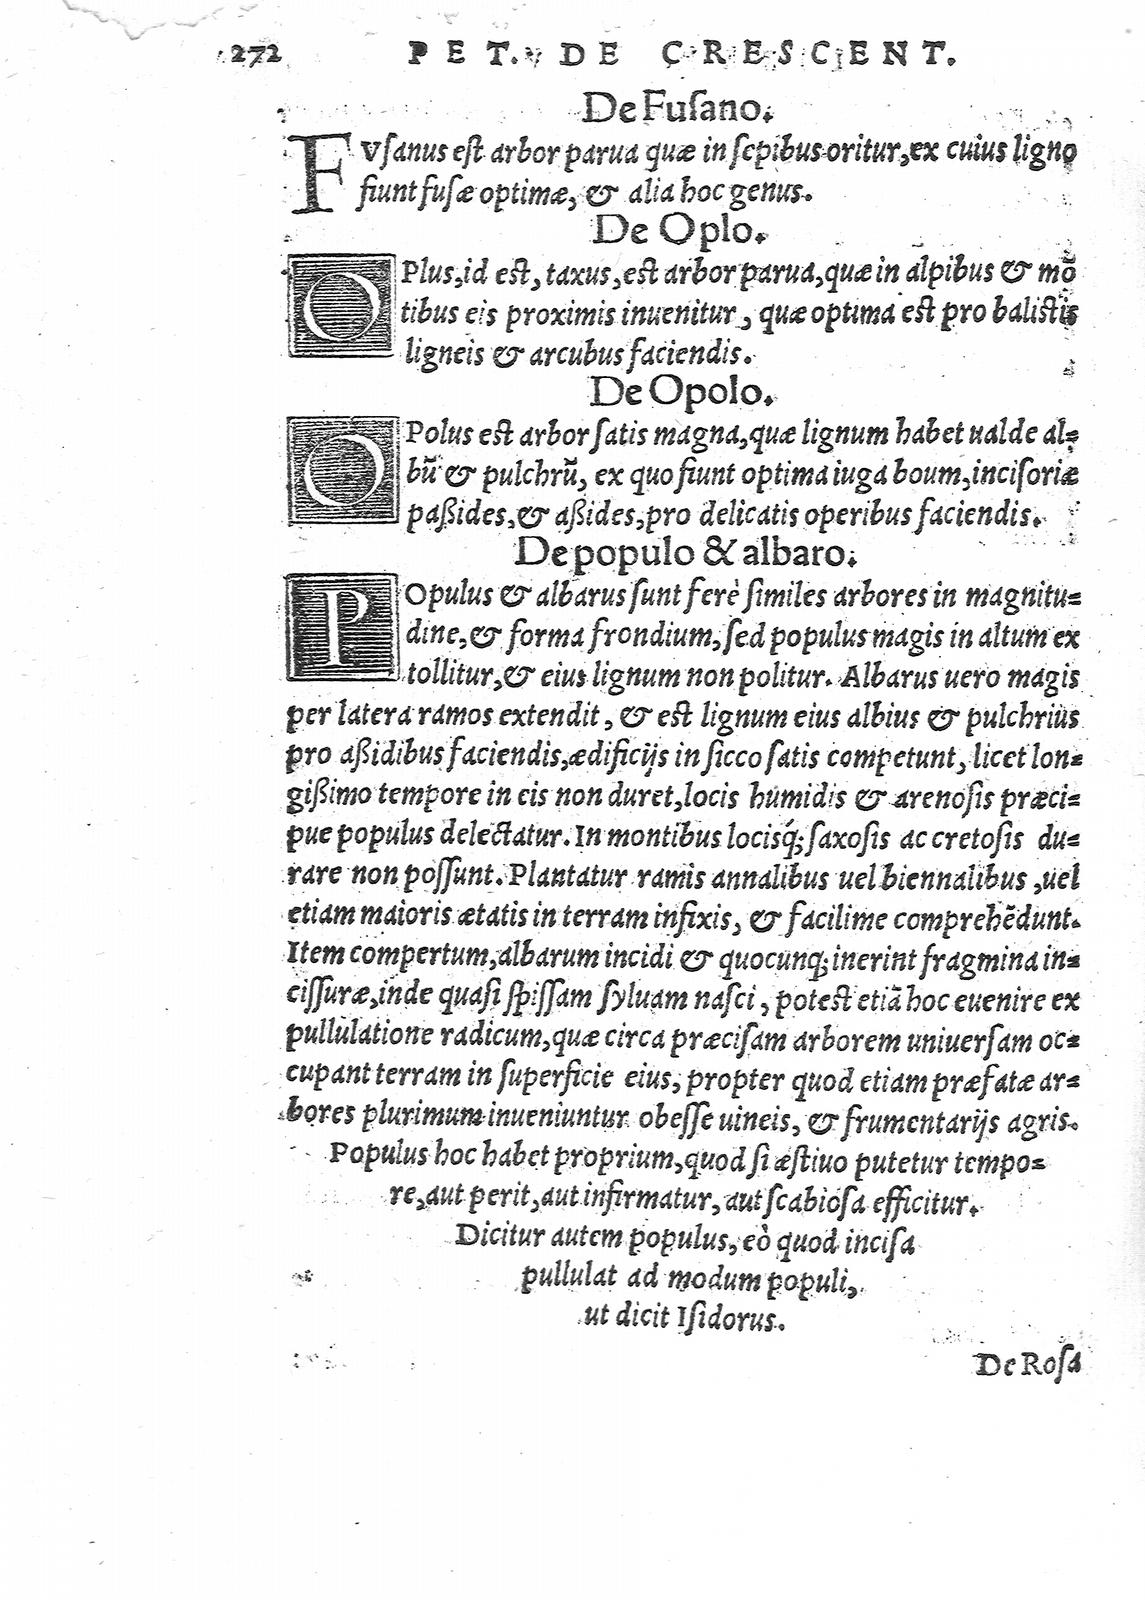 272 PET. DE CRESCENT.
De Fuſano.
FVſanus eſt arbor parua quæ in ſepibus oritur, ex cuius ligno
fiunt fuſæ optimæ, & alia hoc genus.
De Oplo.
OPlus, id eſt, taxus, eſt arbor parua, quæ in alpibus & mõ
tibus eis proximis inuenitur, quæ optima eſt pro baliſtis
ligneis & arcubus faciendis.
De Opolo.
OPolus eſt arbor ſatis magna, quæ lignum habet ualde al⸗
bũ & pulchrũ, ex quo fiunt optima iuga boum, inciſoriæ
paßides, & aßides, pro delicatis operibus faciendis.
De populo & albaro.
POpulus & albarus ſunt ferè ſimiles arbores in magnitu⸗
dine, & forma frondium, ſed populus magis in altum ex
tollitur, & eius lignum non politur. Albarus uero magis
per latera ramos extendit, & eſt lignum eius albius & pulchrius
pro aßidibus faciendis, ædificijs in ſicco ſatis competunt, licet lon⸗
gißimo tempore in eis non duret, locis humidis & arenoſis præci⸗
pue populus delectatur. In montibus locisq́; ſaxoſis ac cretoſis du⸗
rare non poſſunt. Plantatur ramis annalibus uel biennalibus, uel
etiam maioris ætatis in terram infixis, & facilime comprehẽdunt.
Item compertum, albarum incidi & quocunq; inerint fragmina in⸗
ciſſuræ, inde quaſi ſpiſſam ſyluam naſci, poteſt etiã hoc euenire ex
pullulatione radicum, quæ circa præciſam arborem uniuerſam oc⸗
cupant terram in ſuperficie eius, propter quod etiam præfatæ ar⸗
bores plurimum inueniuntur obeſſe uineis, & frumentarijs agris.
Populus hoc habet proprium, quod ſi æſtiuo putetur tempo⸗
re, aut perit, aut infirmatur, aut ſcabioſa efficitur.
Dicitur autem populus, eò quod inciſa
pullulat ad modum populi,
ut dicit Iſidorus.
De Roſa